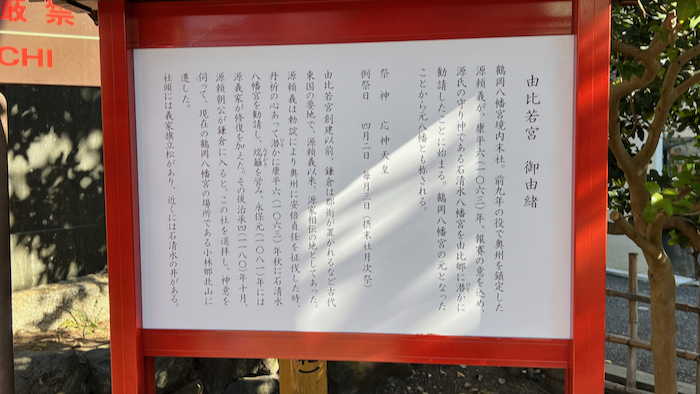 厳禁
CHI
由比若宮 御由緒
鶴岡八幡宮境内末社。前九年の役で奥州を鎮定した
源頼義が、康平六(一〇六三)年、報賽の意を込め、
源氏の守り神である石清水八幡宮を由比郷に潜かに
勧請したことに始まる。鶴岡八幡宮の元となった
ことから元八幡とも称される。
祭神 応神天皇
例祭日 四月二日 毎月三日(摂末社月次祭)
由比若宮創建以前、鎌倉は郡衙が置かれるなど古代
東国の要地で、源頼義以来、源家相伝の地としてあった。
源頼義は勅定により奥州に安倍貞任を征伐した時、
丹祈の心あって潜かに康平六(一〇六三)年秋に石清水
八幡宮を勧請し、瑞籬を営み、永保元(一〇八一)年には
源義家が修復を加えた。その後治承四(一一八〇)年十月、
源頼朝公が鎌倉に入ると、この社を遥拝し、神意を
伺って、現在の鶴岡八幡宮の場所である小林郷北山に
遷した。
社頭には義家旗立松があり、近くには石清水の井がある。